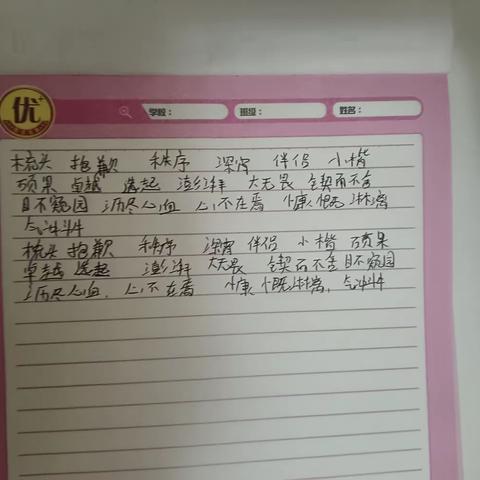 优+
学校： 班级： 姓名：
梳头 抱歉 秩序 深宵 伴侣 小楷
硕果 卓越 选起 澎湃 大无畏 锲而不舍
目不窥园 沥尽心血 心不在焉 慷慨淋漓
气冲斗牛
梳头 抱歉 秩序 深宵 伴侣 小楷 硕果
卓越 选起 澎湃 大无畏 锲而不舍 目不窥园
沥尽心血 心不在焉 慷慨淋漓 气冲斗牛